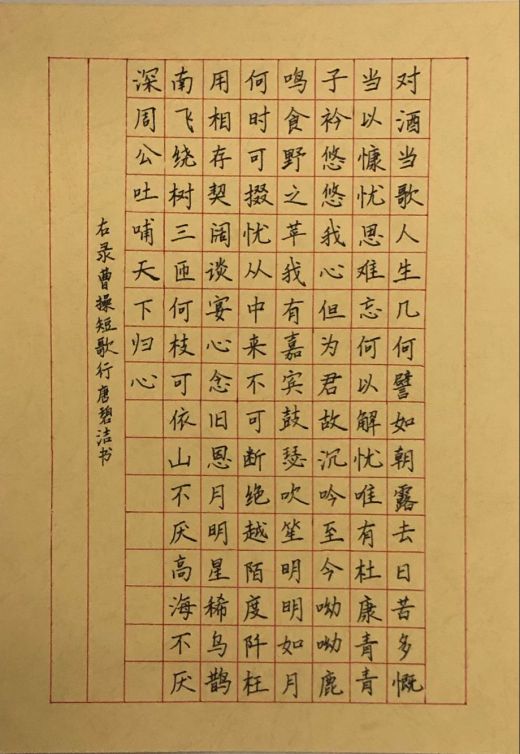 对酒当歌人生几何譬如朝露去日苦多慨
当以慷忧思难忘何以解忧唯有杜康青青
子衿悠悠我心但为君故沉吟至今呦呦鹿
鸣食野之苹我有嘉宾鼓瑟吹笙明明如月
何时可掇忧从中来不可断绝越陌度阡枉
用相存契阔谈宴心念旧恩月明星稀乌鹊
南飞绕树三匝何枝可依山不厌高海不厌
深周公吐哺天下归心
右录曹操短歌行唐碧洁书